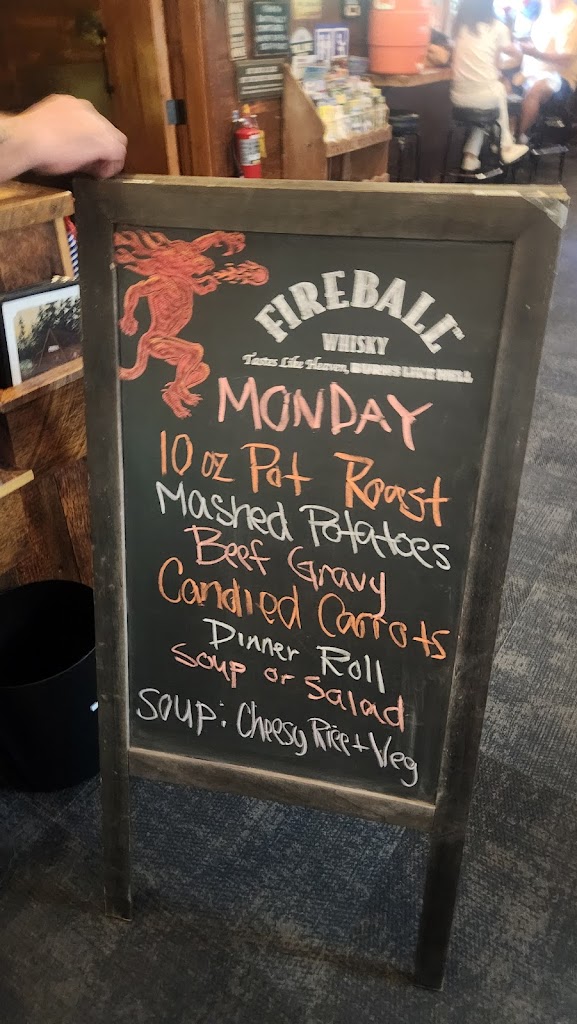 FIREBALL
WHISKY
Tastes Like Heaven, BURNS LIKE HELL
MONDAY
10 oz Pot Roast
Mashed Potatoes
Beef Gravy
Candied Carrots
Dinner Roll
Soup or Salad
SOUP: Cheesy Rice + Veg